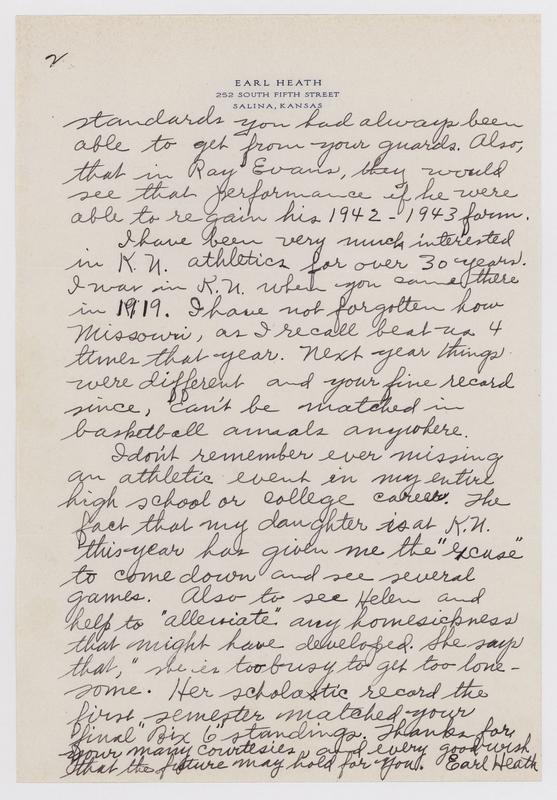 2
EARL HEATH
252 SOUTH FIFTH STREET
SALINA, KANSAS
standards you had always been
able to get from your guards. Also,
that in Ray Evans, they would
see that performance if he were
able to regain his 1942-1943 form.
I have been very much interested
in K.U. athletics for over 30 years.
I was in K.U. when you came there
in 1919. I have not forgotten how
Missouri, as I recall beat us 4
times that year. Next year things
were different and your fine record
since, can't be matched in
basketball annals anywhere.
I don't remember ever missing
an athletic event in my entire
high school or college career. The
fact that my daughter is at K.U.
this year has given me the "excuse"
to come down and see several
games. Also to see Helen and
help to "alleviate" any homesickness
that might have developed. She says
that, "she is too busy to get too lone-
some. Her scholastic record the
first semester matched your
final "Big 6" standings. Thanks for
your many courtesies, and every good wish
that the future may hold for you. Earl Heath